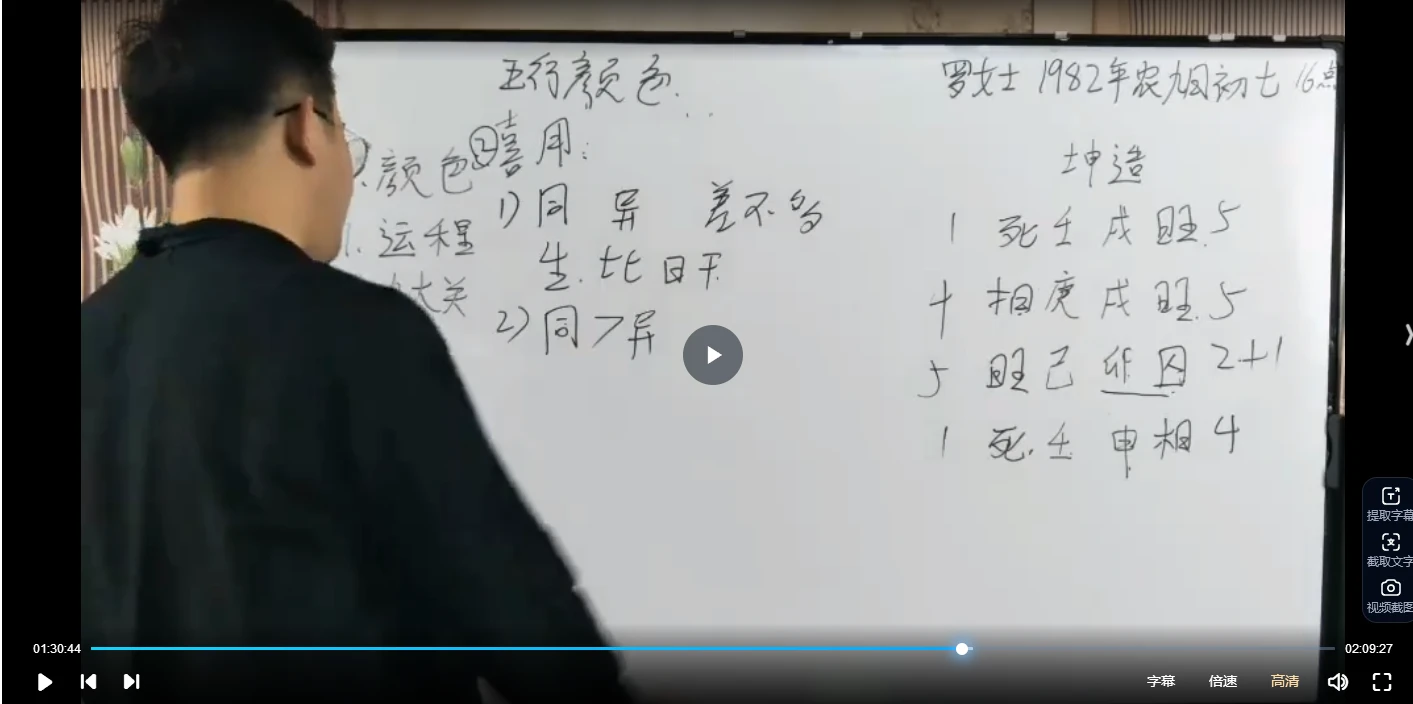 五行颜色.
罗女士 1982年农九月初七 16点
②喜用:
颜色
1) 同 异 差不多
运程
生.比日干
大关
2) 同>异
坤造
1 死壬戌旺.5
4 相庚戌旺.5
5 旺己卯囚 2+1
1 死.壬申相4
提取字幕
截取文字
视频截图
01:30:44
02:09:27
字幕
倍速
高清